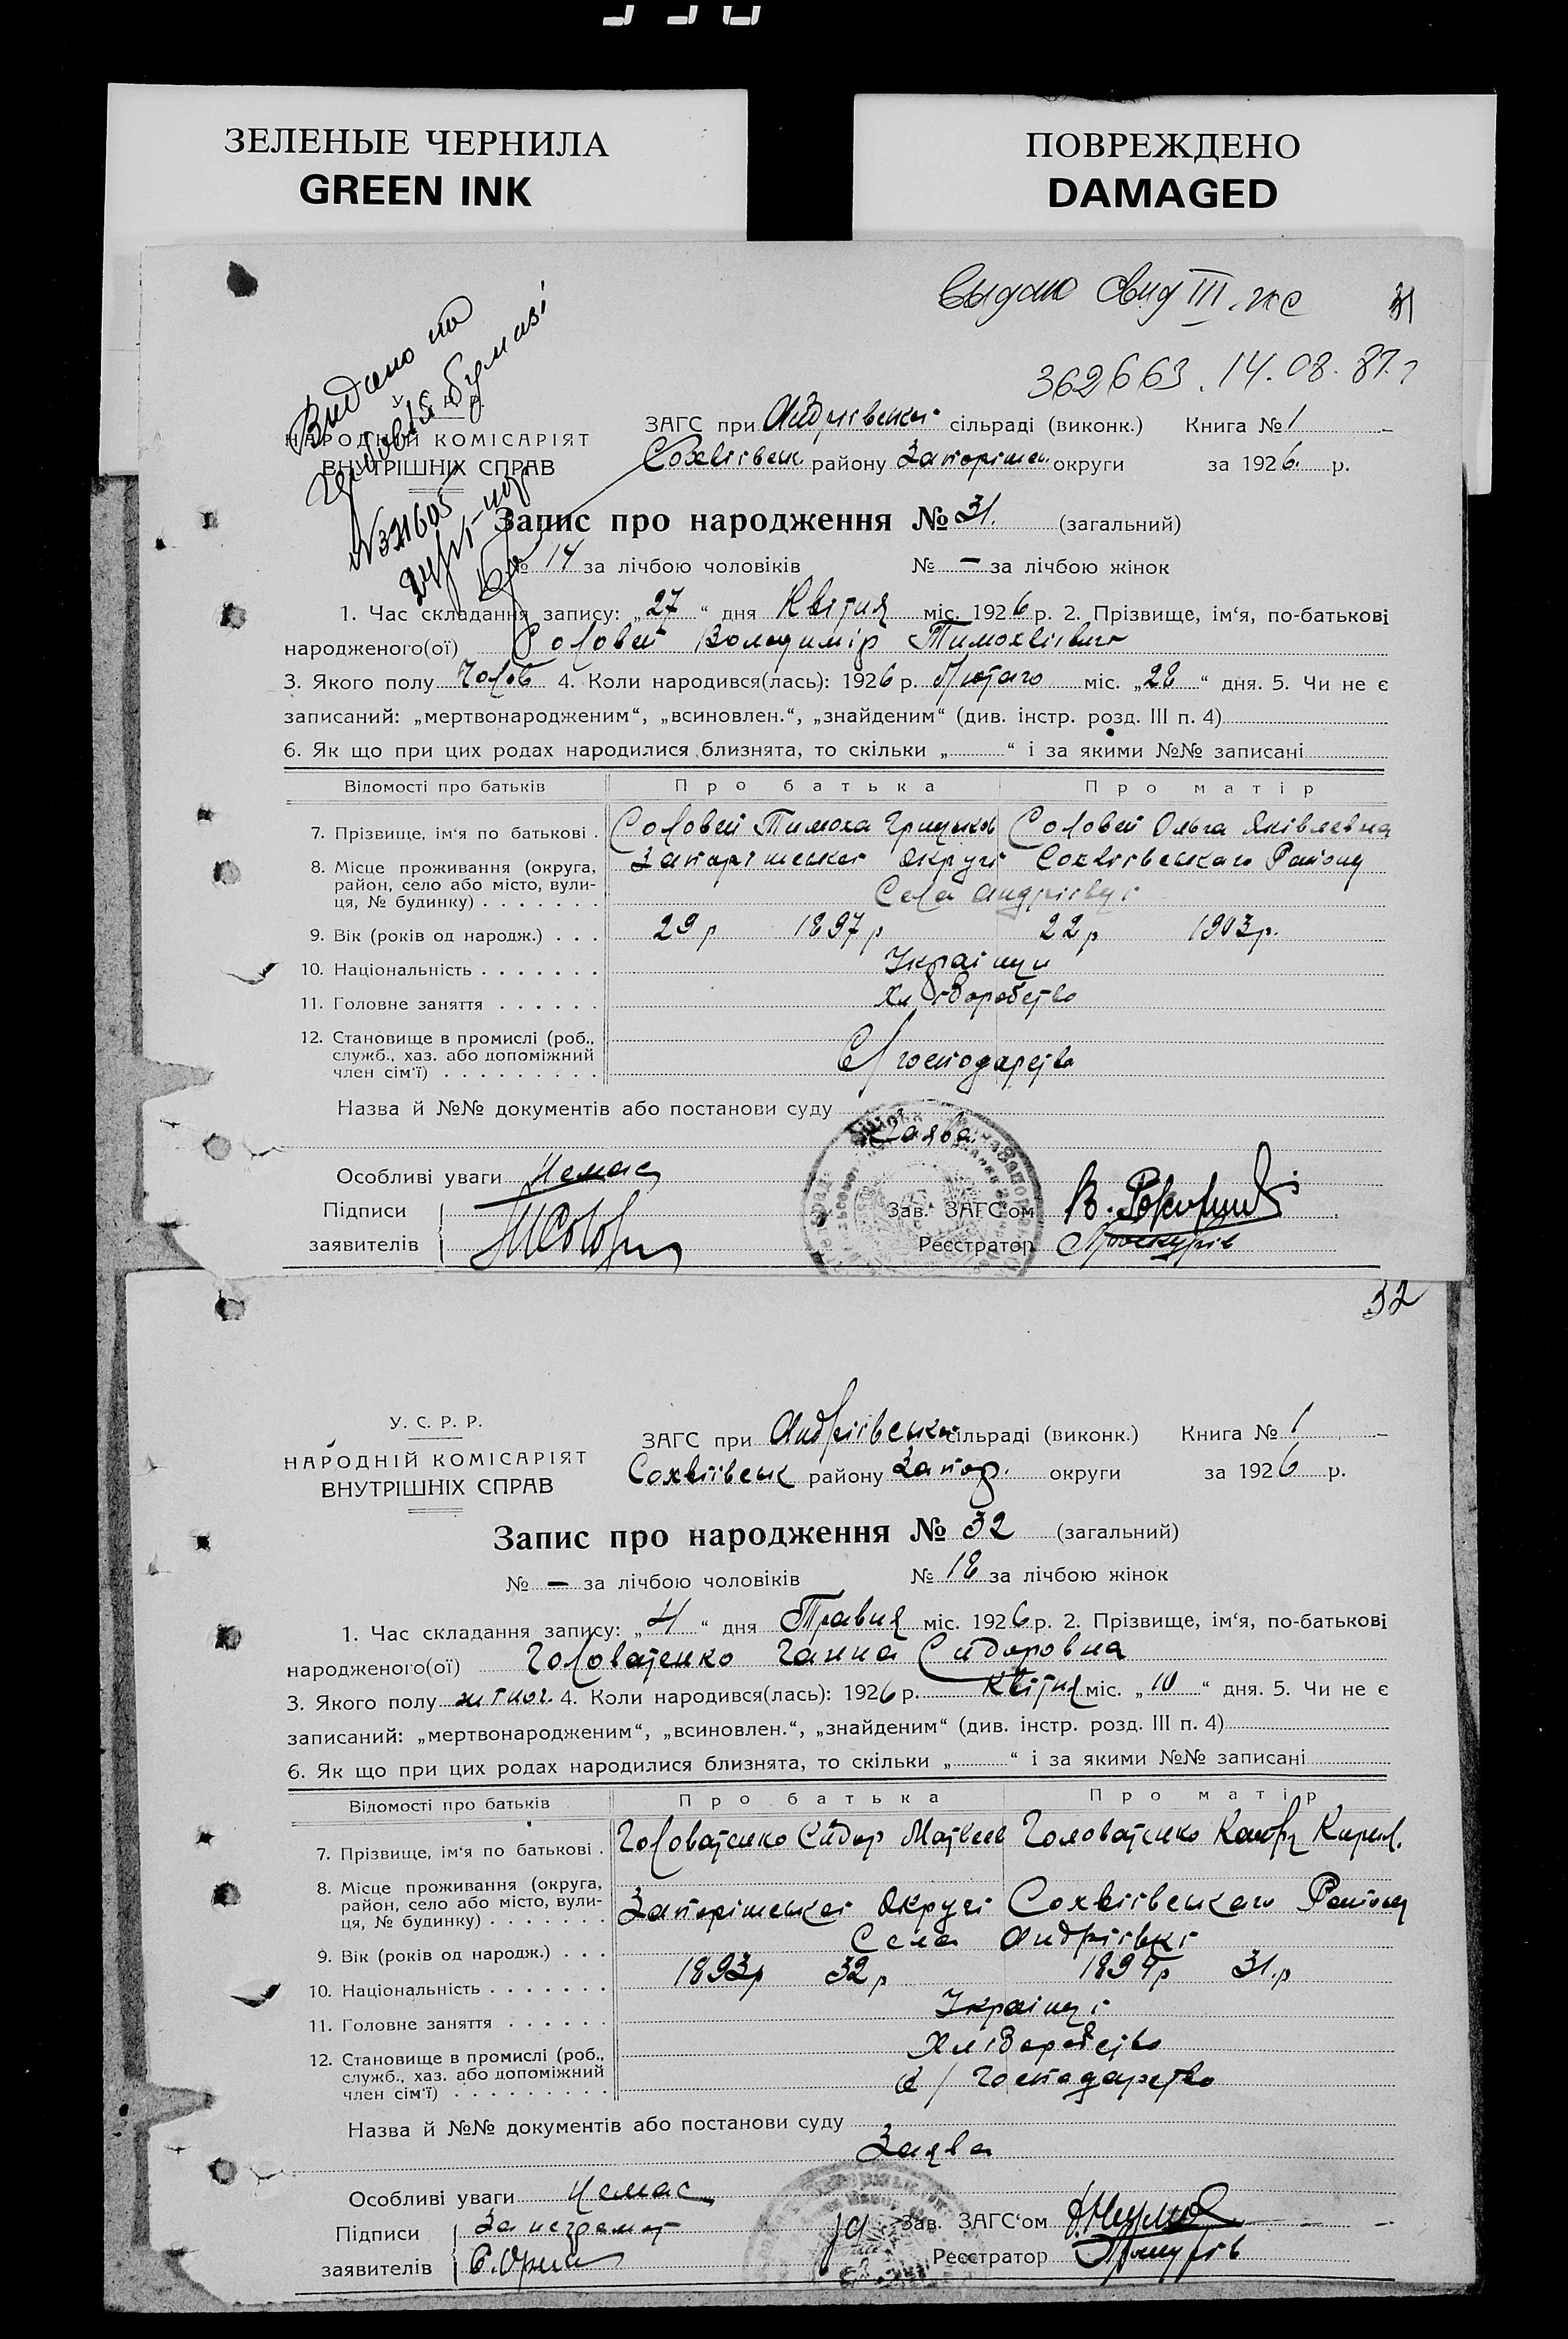 ЗЕЛЕНЫЕ ЧЕРНИЛА
GREEN INK
ПОВРЕЖДЕНО
DAMAGED
Выдано свид III-жс
31
362663. 14.08.87г
Видано на
гербовій бумазі
№321605
У. С. Р. Р.
НАРОДНІЙ КОМІСАРІЯТ
ВНУТРІШНІХ СПРАВ
ЗАГС при Андріївськи сільраді (виконк.) Книга № 1
Софіївськ району Запоріжск округи за 1926 р.
Запис про народження № 31. (загальний)
№ 14 за лічбою чоловіків № — за лічбою жінок
1. Час складання запису: „27“ дня Квітня міс. 1926 р. 2. Прізвище, ім‘я, по-батькові
народженого(ої) Соловей Володимір Тимохвіівич
3. Якого полу Чолов 4. Коли народився(лась): 1926 р. Лютаго міс. „28“ дня. 5. Чи не є
записаний: „мертвонародженим“, „всиновлен.“, „знайденим“ (див. інстр. розд. III п. 4)
6. Як що при цих родах народилися близнята, то скільки „ “ і за якими №№ записані
Відомості про батьків Про батька Про матір
7. Прізвище, ім‘я по батькові . Соловей Тимоха Грицьков Соловей Ольга Яківлевна
8. Місце проживання (округа, район, село або місто, вулиця, № будинку) Запоріжської Округі Сохвіівськаго Району
Села Андріівкі
9. Вік (років од народж.) . . . 29 р 1897 р 22 р 1903 р.
10. Національність Украінци
11. Головне заняття Хліборобство
12. Становище в промислі (роб., служб., хаз. або допоміжний член сім‘ї) С/господарство
Назва й №№ документів або постанови суду
Заява
Особливі уваги Немає
Підписи
заявителів
Зав. ЗАГС‘ом
Реєстратор
32
У. С. Р. Р.
НАРОДНІЙ КОМІСАРІЯТ
ВНУТРІШНІХ СПРАВ
ЗАГС при Андріївськи сільраді (виконк.) Книга № 1
Сохвіівськ району Запор. округи за 1926 р.
Запис про народження № 32 (загальний)
№ — за лічбою чоловіків № 18 за лічбою жінок
1. Час складання запису: „4“ дня Травня міс. 1926 р. 2. Прізвище, ім‘я, по-батькові
народженого(ої) Головатенко Ганна Сидоровна
3. Якого полу жіноч. 4. Коли народився(лась): 1926 р. Квітня міс. „10“ дня. 5. Чи не є
записаний: „мертвонародженим“, „всиновлен.“, „знайденим“ (див. інстр. розд. III п. 4)
6. Як що при цих родах народилися близнята, то скільки „ “ і за якими №№ записані
Відомості про батьків Про батька Про матір
7. Прізвище, ім‘я по батькові . Головатенко Сидор Матвеев Головатенко Кирил.
8. Місце проживання (округа, район, село або місто, вулиця, № будинку) Запоріжської Округі Сохвіівськаго Району
Села Андріівкі
9. Вік (років од народж.) . . . 1893р 32 р 1894р 31.р
10. Національність Украінці
11. Головне заняття Хліборобство
12. Становище в промислі (роб., служб., хаз. або допоміжний член сім‘ї) С/Господарство
Назва й №№ документів або постанови суду
Заява
Особливі уваги Немає
Підписи За неграмот
заявителів
Зав. ЗАГС‘ом
Реєстратор